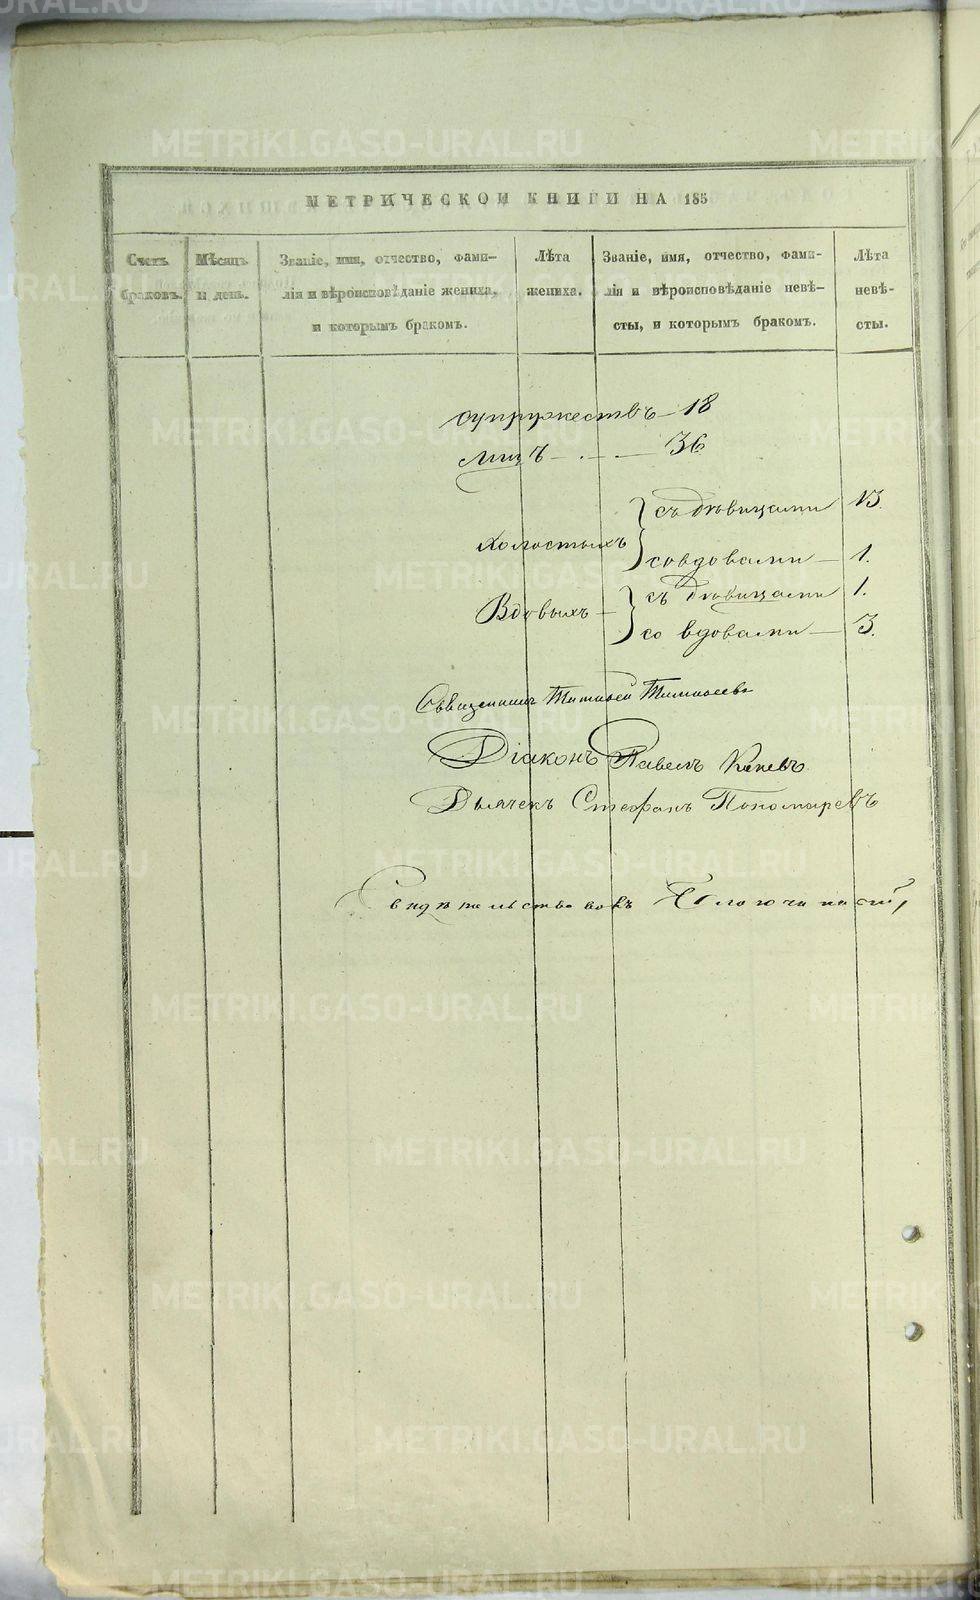 МЕТРИЧЕСКОЙ КНИГИ НА 185
Счетъ браковъ.
Мѣсяцъ и день.
Званіе, имя, отчество, фами-
лія и вѣроисповѣданіе жениха,
и которымъ бракомъ.
Лѣта
жениха.
Званіе, имя, отчество, фами-
лія и вѣроисповѣданіе невѣ-
сты, и которымъ бракомъ.
Лѣта
невѣ-
сты.
супружествъ - 18
лицъ - . - . - 36
холостыхъ
съ дѣвицами 13.
со вдовами - 1.
Вдовыхъ -
съ дѣвицами 1.
со вдовами - 3.
Священникъ Тимофеевъ
Діаконъ Павелъ
Дьячекъ Стефанъ Пономаревъ
METRIKI.GASO-URAL.RU